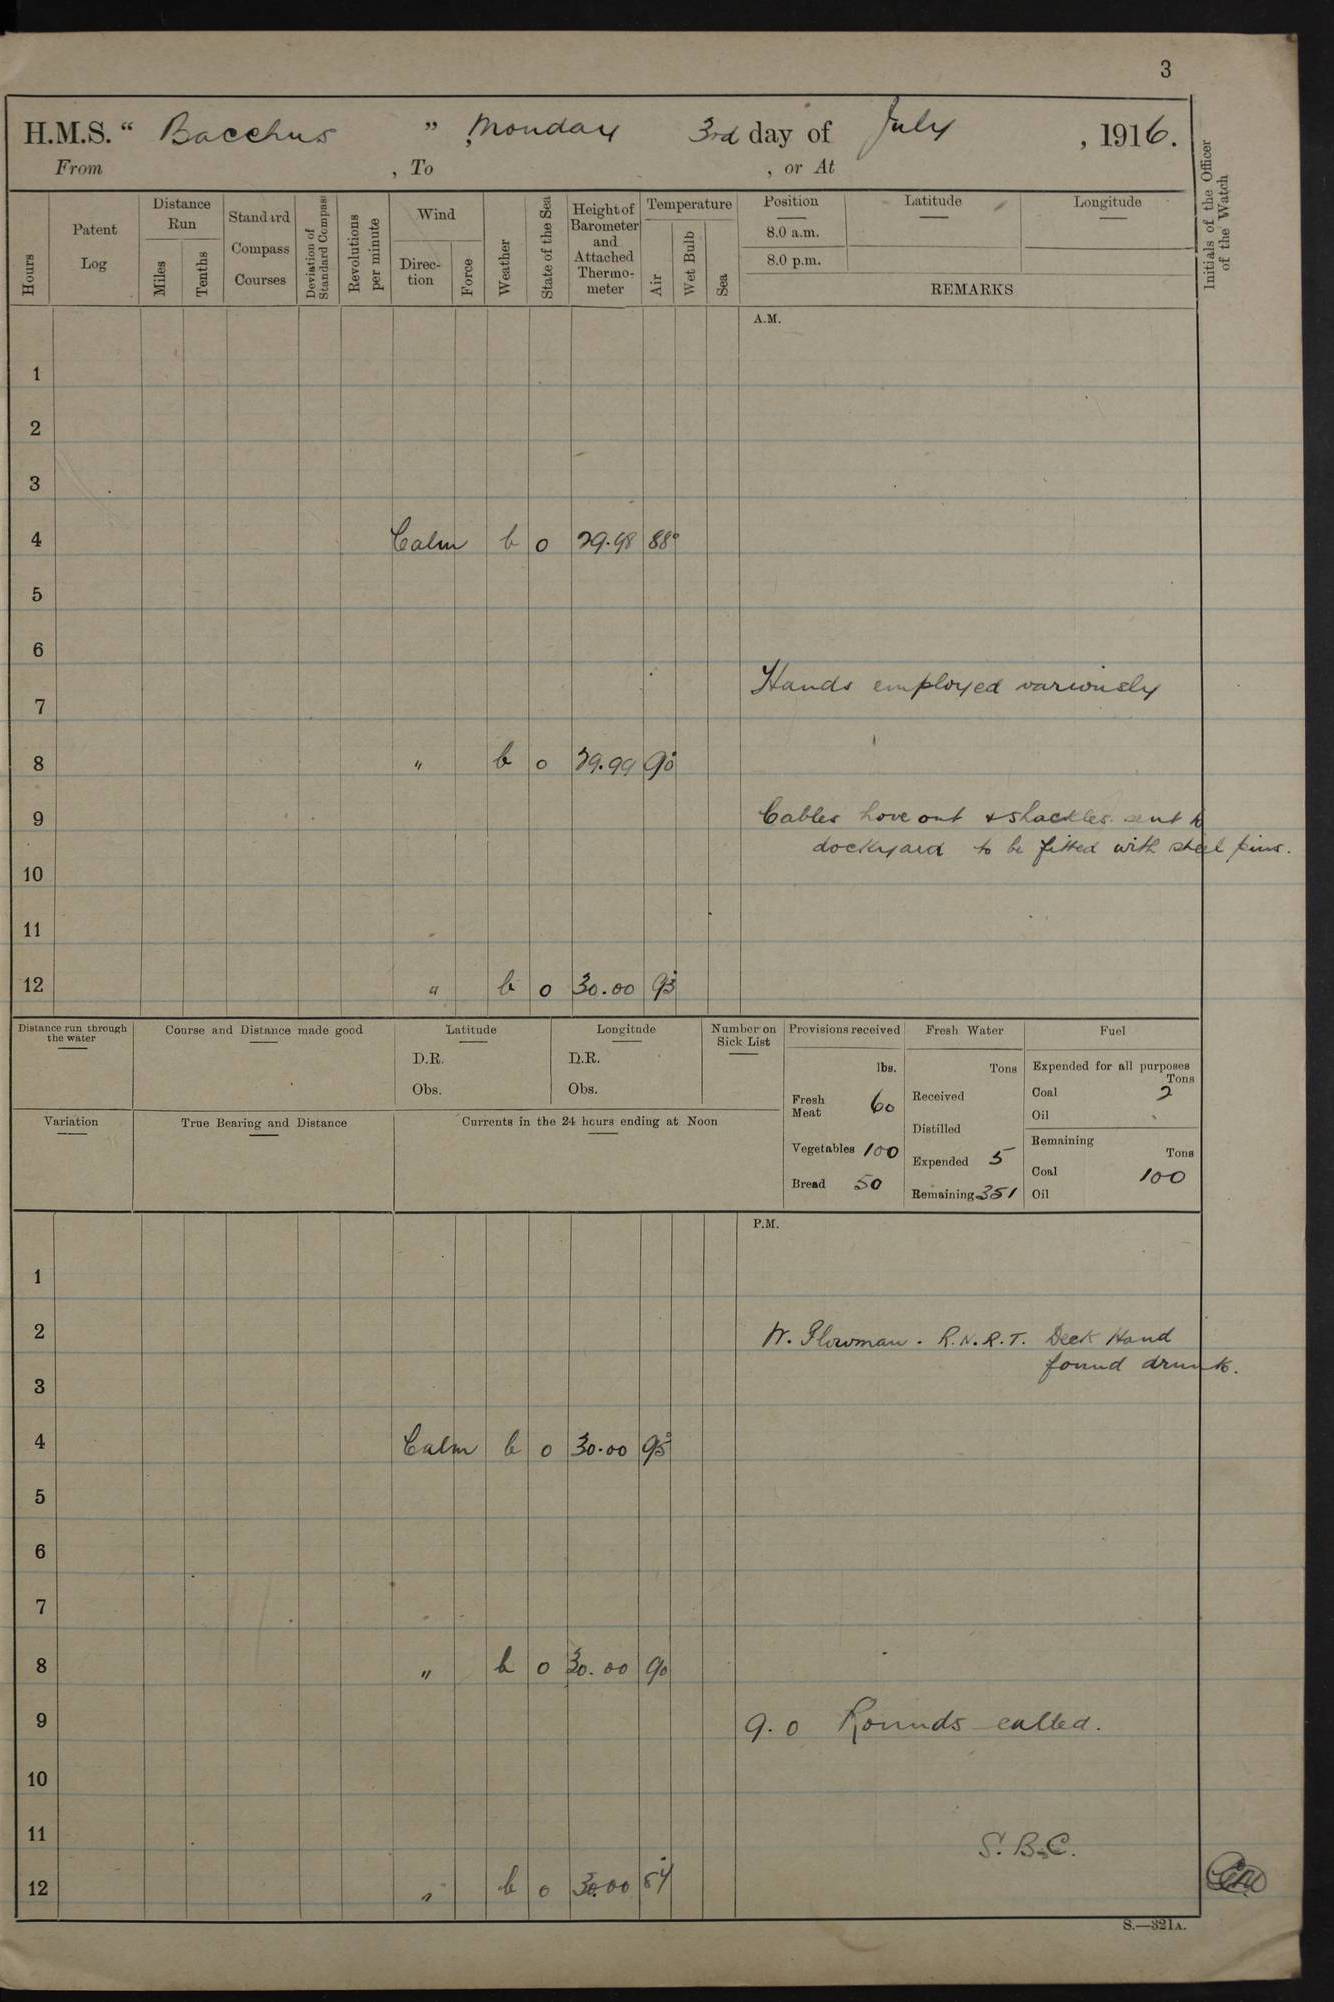 3
H.M.S. “ Bacchus ” , Monday 3rd day of July , 1916.
From , To , or At
Hours
Patent Log
Distance Run
Miles
Tenths
Standard Compass Courses
Deviation of Standard Compass
Revolutions per minute
Wind
Direction
Force
Weather
State of the Sea
Height of Barometer and Attached Thermometer
Temperature
Air
Wet Bulb
Sea
Position
8.0 a.m.
8.0 p.m.
Latitude
Longitude
REMARKS
Initials of the Officer of the Watch
A.M.
1
2
3
4 Calm b 0 29.98 88°
5
6
Hands employed variously
7
8 " b 0 29.99 90°
9 Cables hove out & shackles sent to
dockyard to be fitted with steel pins.
10
11
12 " b 0 30.00 93°
Distance run through the water
Course and Distance made good
Latitude
D.R.
Obs.
Longitude
D.R.
Obs.
Number on Sick List
Provisions received
lbs.
Fresh Meat 60
Vegetables 100
Bread 50
Fresh Water
Tons
Received
Distilled
Expended 5
Remaining 351
Fuel
Expended for all purposes
Tons
Coal 2
Oil
Remaining
Tons
Coal 100
Oil
Variation
True Bearing and Distance
Currents in the 24 hours ending at Noon
P.M.
1
2 W. Plowman. R.N.R.T. Deck Hand
found drunk.
3
4 Calm b 0 30.00 95°
5
6
7
8 " b 0 30.00 90
9 9.0 Rounds called.
10
11 S.B.C.
12 " b 0 30.00 84°
S.—321A.